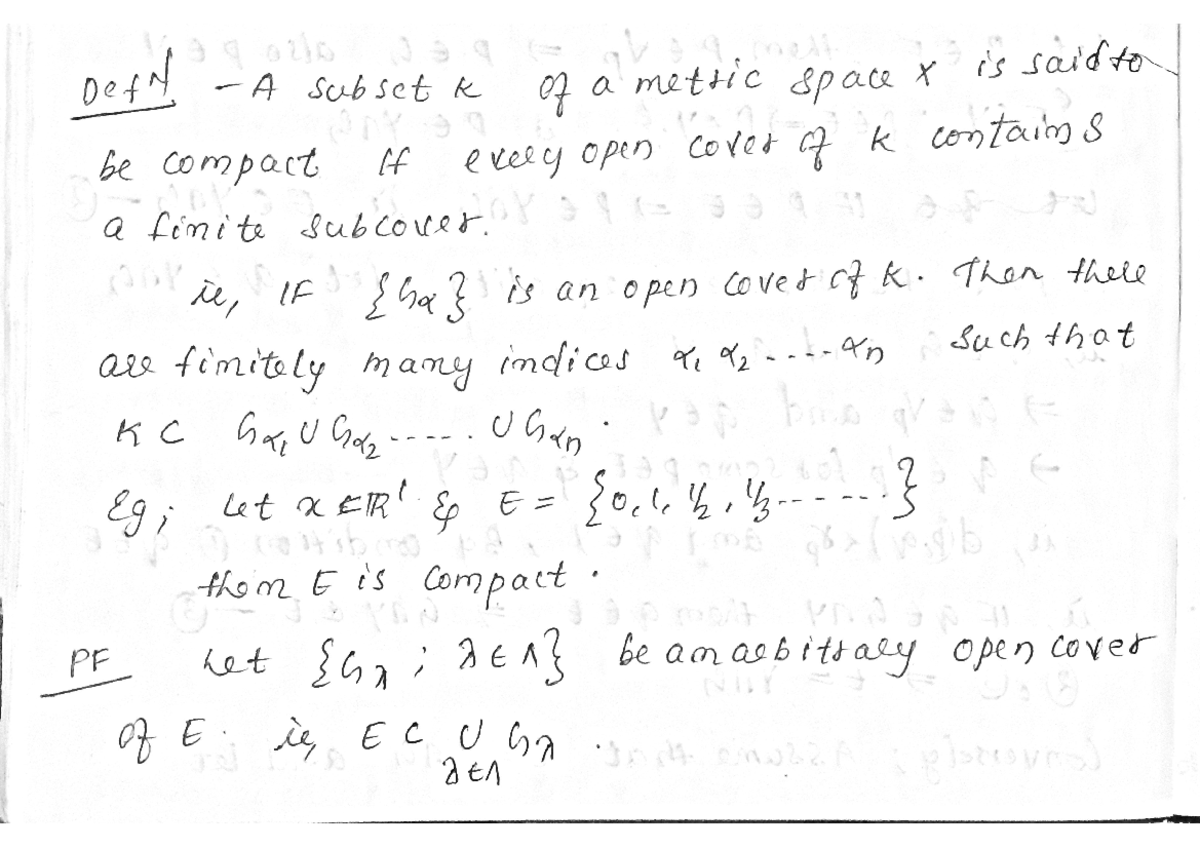 Defn - A subset K of a metric space X is said to
be compact if every open cover of K contains
a finite subcover.
ie, IF {Gα} is an open cover of K. Then there
are finitely many indices α₁ α₂ ---- αn such that
K ⊂ Gα₁ ∪ Gα₂ ----- ∪ Gαn.
Eg; Let x ∈ ℝ¹ & E = {0, 1, 1/2, 1/3 ------}
then E is compact.
PF Let {Gλ ; λ ∈ Λ} be an arbitrary open cover
of E. ie, E ⊂ ∪ Gλ.
λ∈Λ